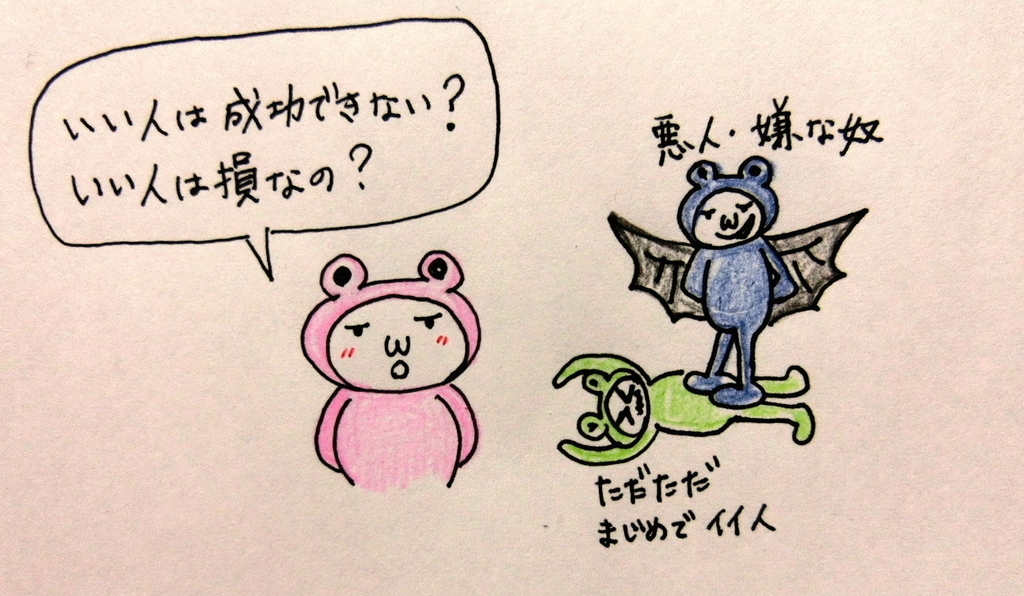 いい人は成功できない?
いい人は損なの?
悪人・嫌な奴
ただただ
まじめでイイ人